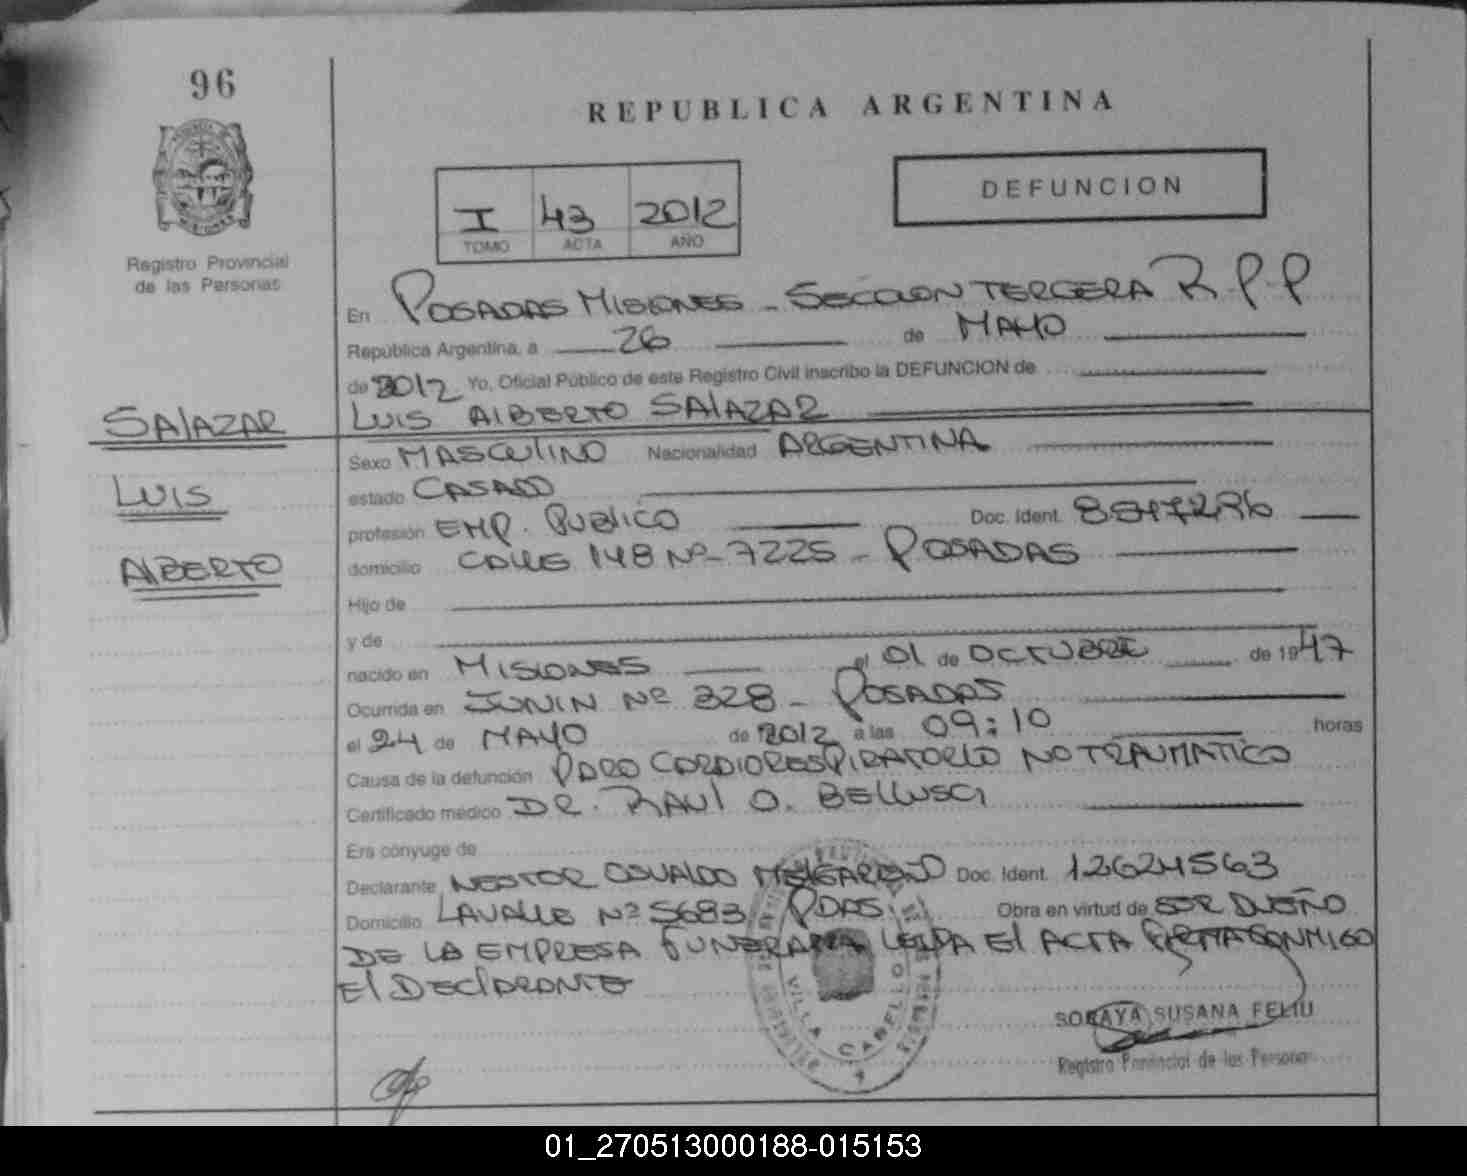 96
REPUBLICA ARGENTINA
DEFUNCION
I 43 2012
TOMO ACTA AÑO
Registro Provincial
de las Personas
En POSADAS MISIONES - SECCION TERCERA R P P
República Argentina, a 26 de MAYO
de 2012 Yo, Oficial Público de este Registro Civil inscribo la DEFUNCION de
LUIS ALBERTO SALAZAR
SALAZAR
LUIS
ALBERTO
Sexo MASCULINO Nacionalidad ARGENTINA
estado CASADO
profesión EMP. PUBLICO Doc. Ident.
domicilio CALLE 148 Nº 7225 - POSADAS
Hijo de
y de
nacido en MISIONES el 01 de OCTUBRE de 1947
Ocurrida en JUNIN Nº 328 - POSADAS
el 24 de MAYO de 2012 a las 09:10 horas
Causa de la defunción PARO CARDIORESPIRATORIO NO TRAUMATICO
Certificado médico DR. RAUL O. BELLUSCI
Era cónyuge de
Declarante NESTOR OSVALDO Doc. Ident. 12624563
Domicilio LAVALLE Nº 5683 PDAS Obra en virtud de SER DUEÑO
DE LA EMPRESA FUNERARIA LEIDA EL ACTA FIRMA CONMIGO
EL DECLARANTE
VILLA CABELLO
SORAYA SUSANA FELIU
Registro Provincial de las Personas
01_270513000188-015153